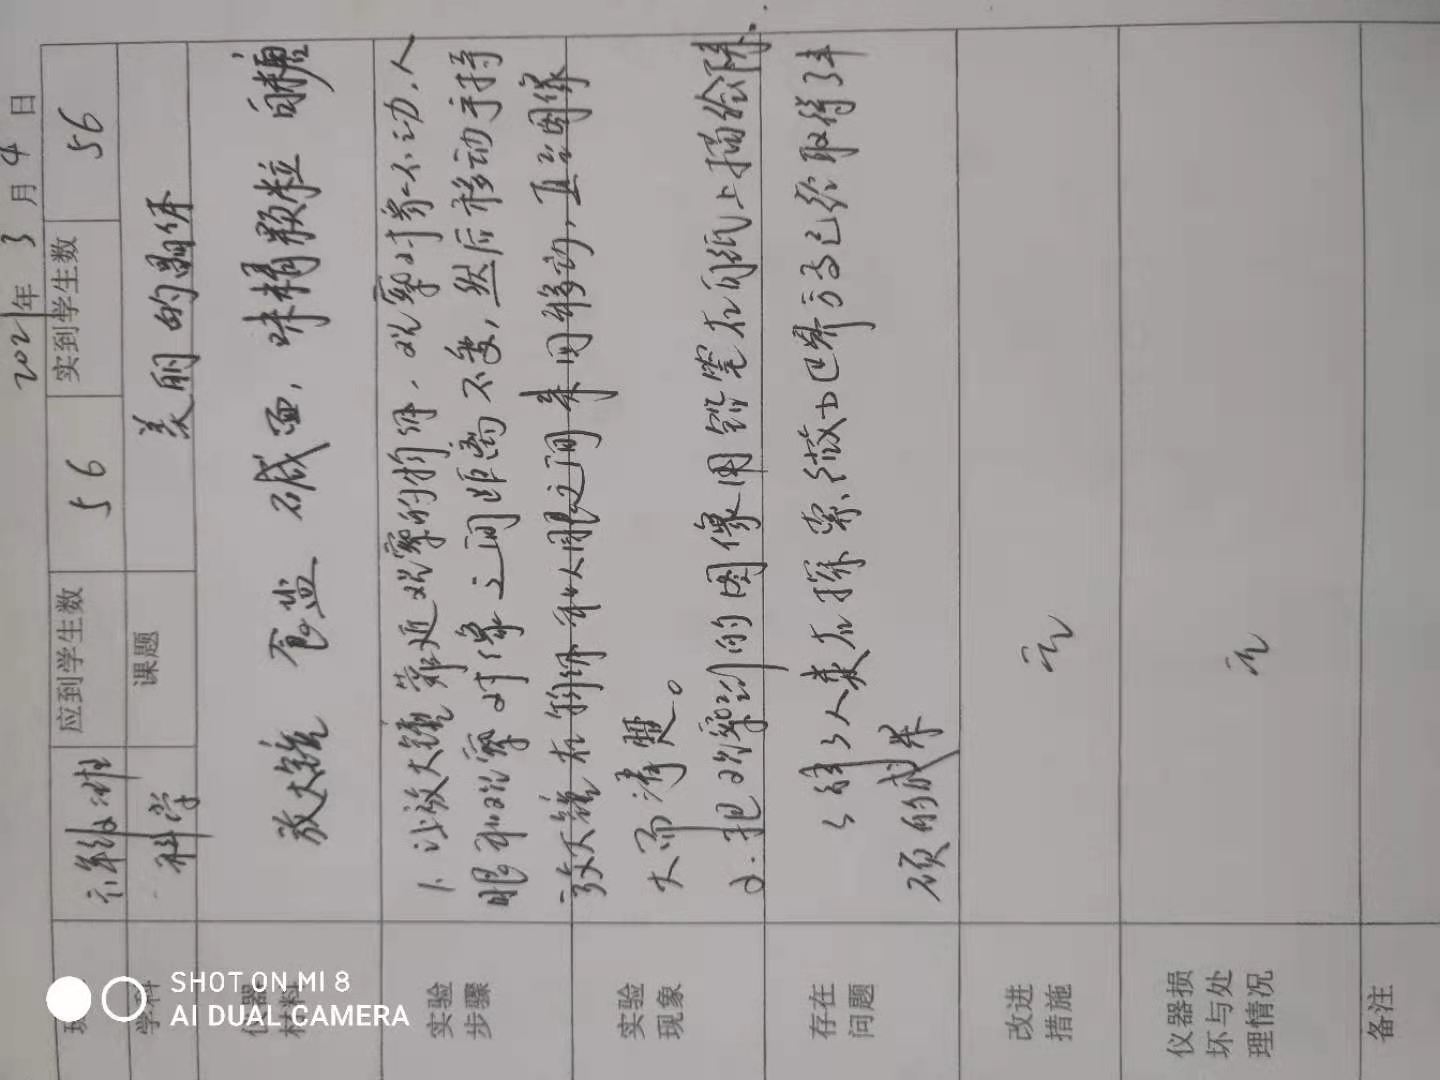 2021年3月4日
班 六年级2班 应到学生数 56 实到学生数 56
学科 科学 课题 美丽的晶体
仪器材料 放大镜 食盐 碱面，味精颗粒 白糖
实验步骤 1. 让放大镜靠近观察的物体，观察对象不动，人
眼和观察对像之间距离不变，然后移动手持
放大镜在物体和人眼之间来回移动，直至图像
实验现象 大而清楚。
2. 把观察到的图像用铅笔在白纸上描绘下来.
存在问题 人类在探索微小世界方面已经取得了丰
硕的成果
改进措施 无
仪器损坏与处理情况 无
备注
SHOT ON MI 8
AI DUAL CAMERA